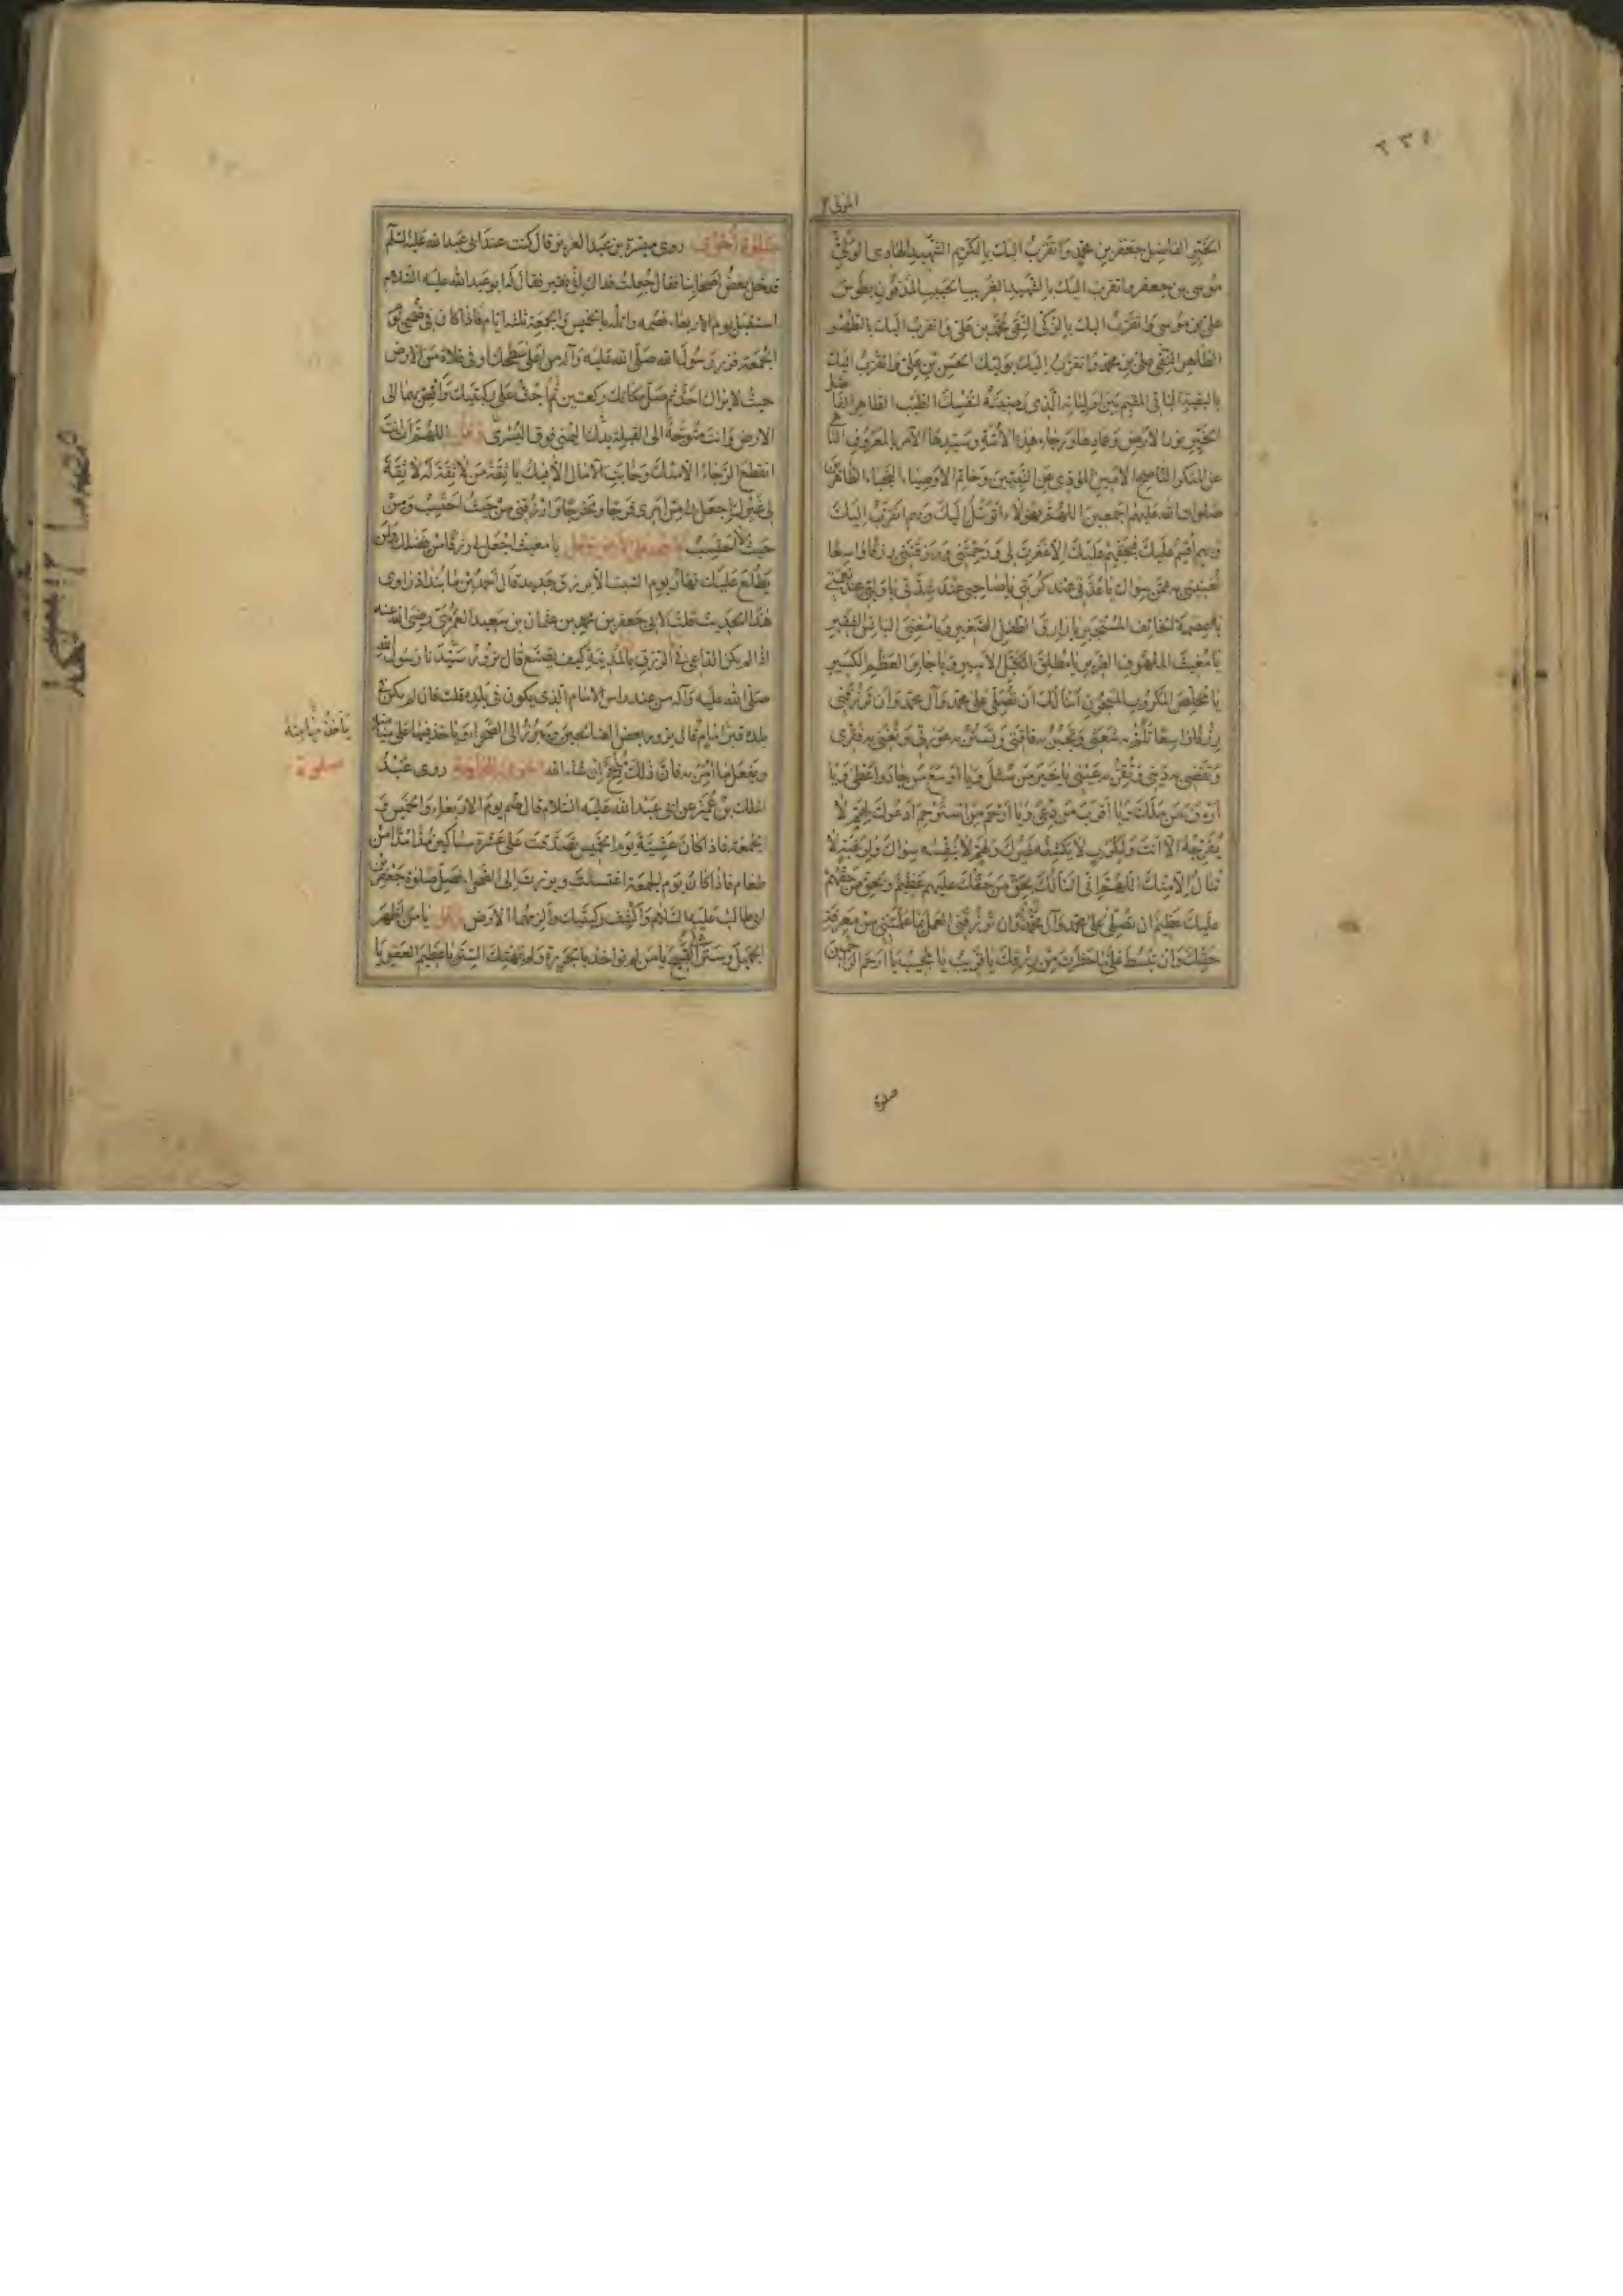 ٢٣٤
المولى٢
الخير الفاضل جعفر بن محمد واتقرب اليك بالكريم الشهيد الهادى الولى
موسى بن جعفر واتقرب اليك بالشهيد الغريب الحبيب المدفون بطوس
على بن موسى واتقرب اليك بالزكى التقى محمد بن على واتقرب اليك بالطهر
الطاهر النقى على بن محمد واتقرب اليك بوليك الحسن بن على واتقرب اليك
بالبقية الباقى المقيم بين اوليائه الذى رضيته لنفسك الطيب الطاهر الفاضل
الخير نور الارض وعمادها ورجاء هذه الامة وسيدها الآمر بالمعروف الناهى
عن المنكر الناصح الامين المؤدى عن النبيين وخاتم الاوصياء النجباء الطاهرين
صلوات الله عليهم اجمعين اللهم بهؤلاء اتوسل اليك وبهم اتقرب اليك
وبهم اقسم عليك فبحقهم عليك الا غفرت لى ورحمتنى ورزقتنى رزقا واسعا
تغنينى به عمن سواك يا عدتى عند كربتى يا صاحبى عند شدتى يا وليى عند نعمتى
يا عصمة الخائف المستجير يا رازق الطفل الصغير ويا مغنى البائس الفقير
يا مغيث الملهوف الضرير يا مطلق المكبل الاسير ويا جابر العظم الكسير
يا مخلص المكروب المسجون اسألك ان تصلى على محمد وآل محمد وان ترزقنى
رزقا واسعا تلم به شعثى وتجبر به فاقتى وتستر به عورتى وتغنى به فقرى
وتقضى به دينى وتقر به عينى يا خير من سئل ويا اوسع من جاد واعطى ويا
ارؤف من ملك ويا اقرب من دعى ويا ارحم من استرحم ادعوك لهم لا
يفرجه الا انت ولكرب لا يكشفه غيرك ولهم لا ينفسه سواك ولرغبة لا
تنال الا منك اللهم انى اسألك بحق من حقك عليهم عظيم وبحق من حقهم
عليك عظيم ان تصلى على محمد وآل محمد وان ترزقنى العمل بما علمتنى من معرفة
حقك وان تبسط على ما حظرت من رزقك يا قريب يا مجيب يا ارحم الراحمين
صلوة
صلوة اخرى روى ميسرة بن عبد العزيز قال كنت عند ابى عبد الله عليه السلم
فدخل بعض اصحابنا فقال جعلت فداك انى فقير فقال له ابو عبد الله عليه السلام
استقبل يوم الاربعاء فصمه واتله بالخميس والجمعة ثلثة ايام فاذا كان فى ضحى يوم
الجمعة فزر رسول الله صلى الله عليه وآله من اعلى سطحك او فى فلاة من الارض
حيث لا يراك احد ثم صل مكانك ركعتين ثم اجث على ركبتيك وافض بهما الى
الارض وانت متوجه الى القبلة بيدك اليمنى فوق اليسرى وقل اللهم انت انت
انقطع الرجاء الا منك وخابت الآمال الا فيك يا ثقة من لا ثقة له لا ثقة
لى غيرك اجعل لى من امرى فرجا ومخرجا وارزقنى من حيث احتسب ومن
حيث لا احتسب ثم اسجد على الارض وقل يا مغيث اجعل لى رزقا من فضلك فلن
يطلع عليك نهار يوم السبت الا برزق جديد قال احمد بن مابنداذ راوى
هذا الحديث قلت لابى جعفر بن محمد بن عثمان بن سعيد العمرى رضى الله عنه
اذا لم يكن الداعى فى الرزق بالمدينة كيف يصنع قال يزور سيدنا رسول الله
صلى الله عليه وآله من عند رأس الامام الذى يكون فى بلده قلت فان لم يكن فى
بلده قبر امام قال يزور بعض الصالحين ويبرز الى الصحراء ويأخذ فيها على ميامنه
ويفعل ما امر به فان ذلك منجح ان شاء الله اخرى للحاجة روى عبد
الملك بن عمير عن ابى عبد الله عليه السلام قال صم يوم الاربعاء والخميس و
الجمعة فاذا كان عشية يوم الخميس تصدقت على عشرة مساكين مدا مدا من
طعام فاذا كان يوم الجمعة اغتسلت وبرزت الى الصحراء فصل صلوة جعفر بن
ابى طالب عليه السلام واكشف ركبتيك والزمهما الارض وقل يا من اظهر
الجميل وستر القبيح يا من لم يؤاخذ بالجريرة ولم يهتك الستر يا عظيم العفو يا
يأخذ ميامنه
صلوة